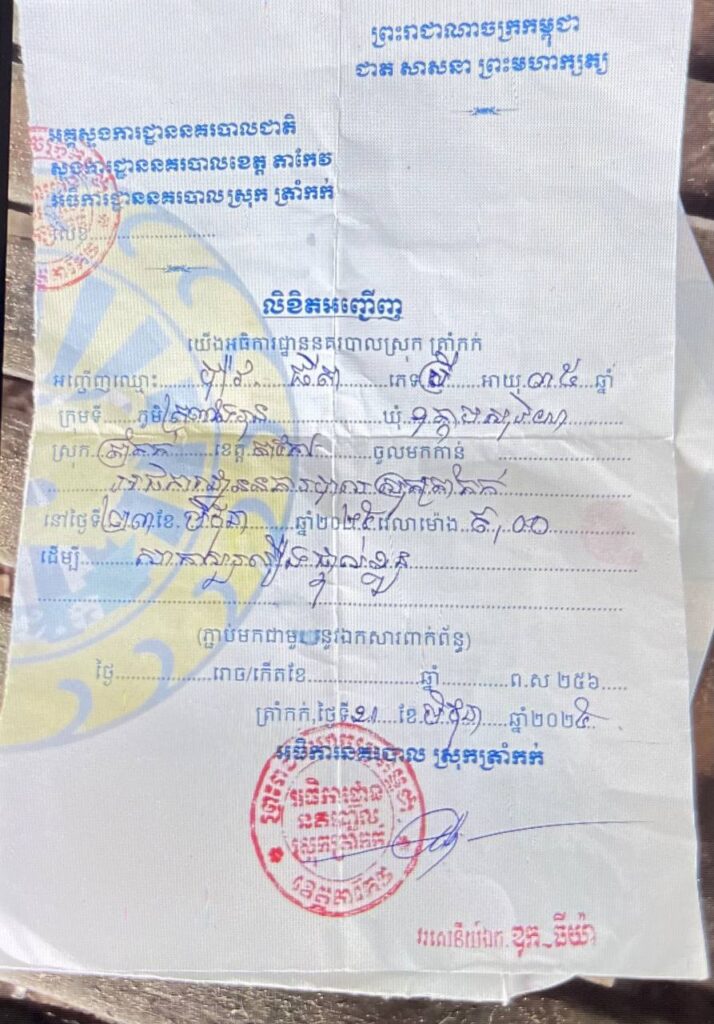 ព្រះរាជាណាចក្រកម្ពុជា
ជាតិ សាសនា ព្រះមហាក្សត្រ
អគ្គស្នងការដ្ឋាននគរបាលជាតិ
ស្នងការដ្ឋាននគរបាលខេត្ត តាកែវ
អធិការដ្ឋាននគរបាលស្រុក ត្រាំកក់
លេខ..........................
លិខិតអញ្ជើញ
យើងអធិការដ្ឋាននគរបាលស្រុក ត្រាំកក់
អញ្ជើញឈ្មោះ........ ........ ភេទ ស្រី ...... អាយុ ៣៥ ឆ្នាំ
ក្រុមទី......ភូមិ ........ ឃុំ ........
ស្រុក ត្រាំកក់ ......ខេត្ត តាកែវ ........ចូលមកកាន់ ....................
អធិការដ្ឋាននគរបាលស្រុកត្រាំកក់
នៅថ្ងៃទី ២៣ ខែ មិថុនា ........ឆ្នាំ២០២៥ វេលាម៉ោង ៩,០០
ដើម្បី........ សាកសួររឿងផ្ទាល់ខ្លួន
(ភ្ជាប់មកជាមួយនូវឯកសារពាក់ព័ន្ធ)
ថ្ងៃ....................រោច/កើតខែ........................ឆ្នាំ..............ព.ស ២៥៦.....
ត្រាំកក់,ថ្ងៃទី ២១ ខែ មិថុនា ឆ្នាំ២០២៥
អធិការនគរបាល ស្រុកត្រាំកក់
អធិការដ្ឋាន
នគរបាល
ស្រុកត្រាំកក់
ខេត្តតាកែវ
វរសេនីយ៍ឯក ឌុក ធីយ៉ា